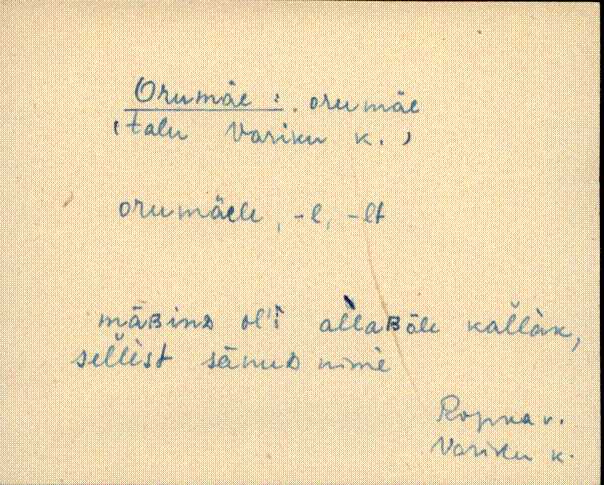 Orumäe : orumäe
(talu Variku k.)
orumäele, -l, -lt
mäʙinᴅ ol'ì allaʙōle kallàk,
sellèst sānuᴅ nimè
Ropka v.
Variku k.